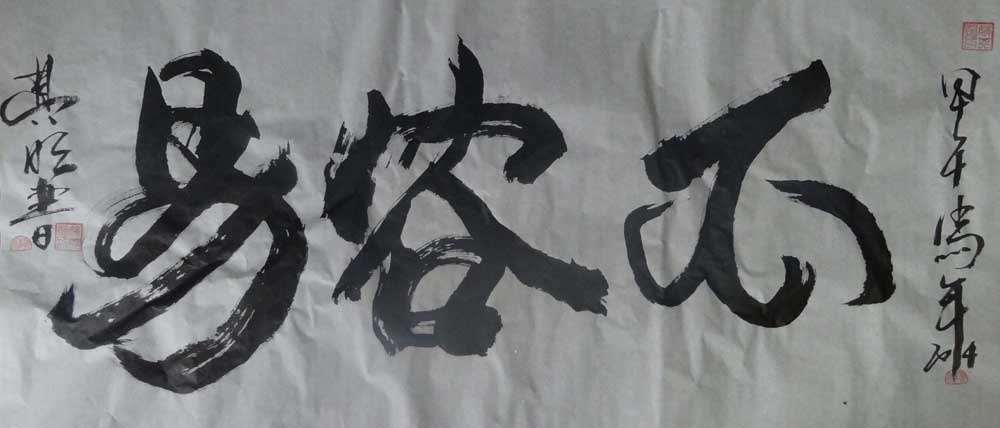 甲午馬年
2014
不容易
其旺書